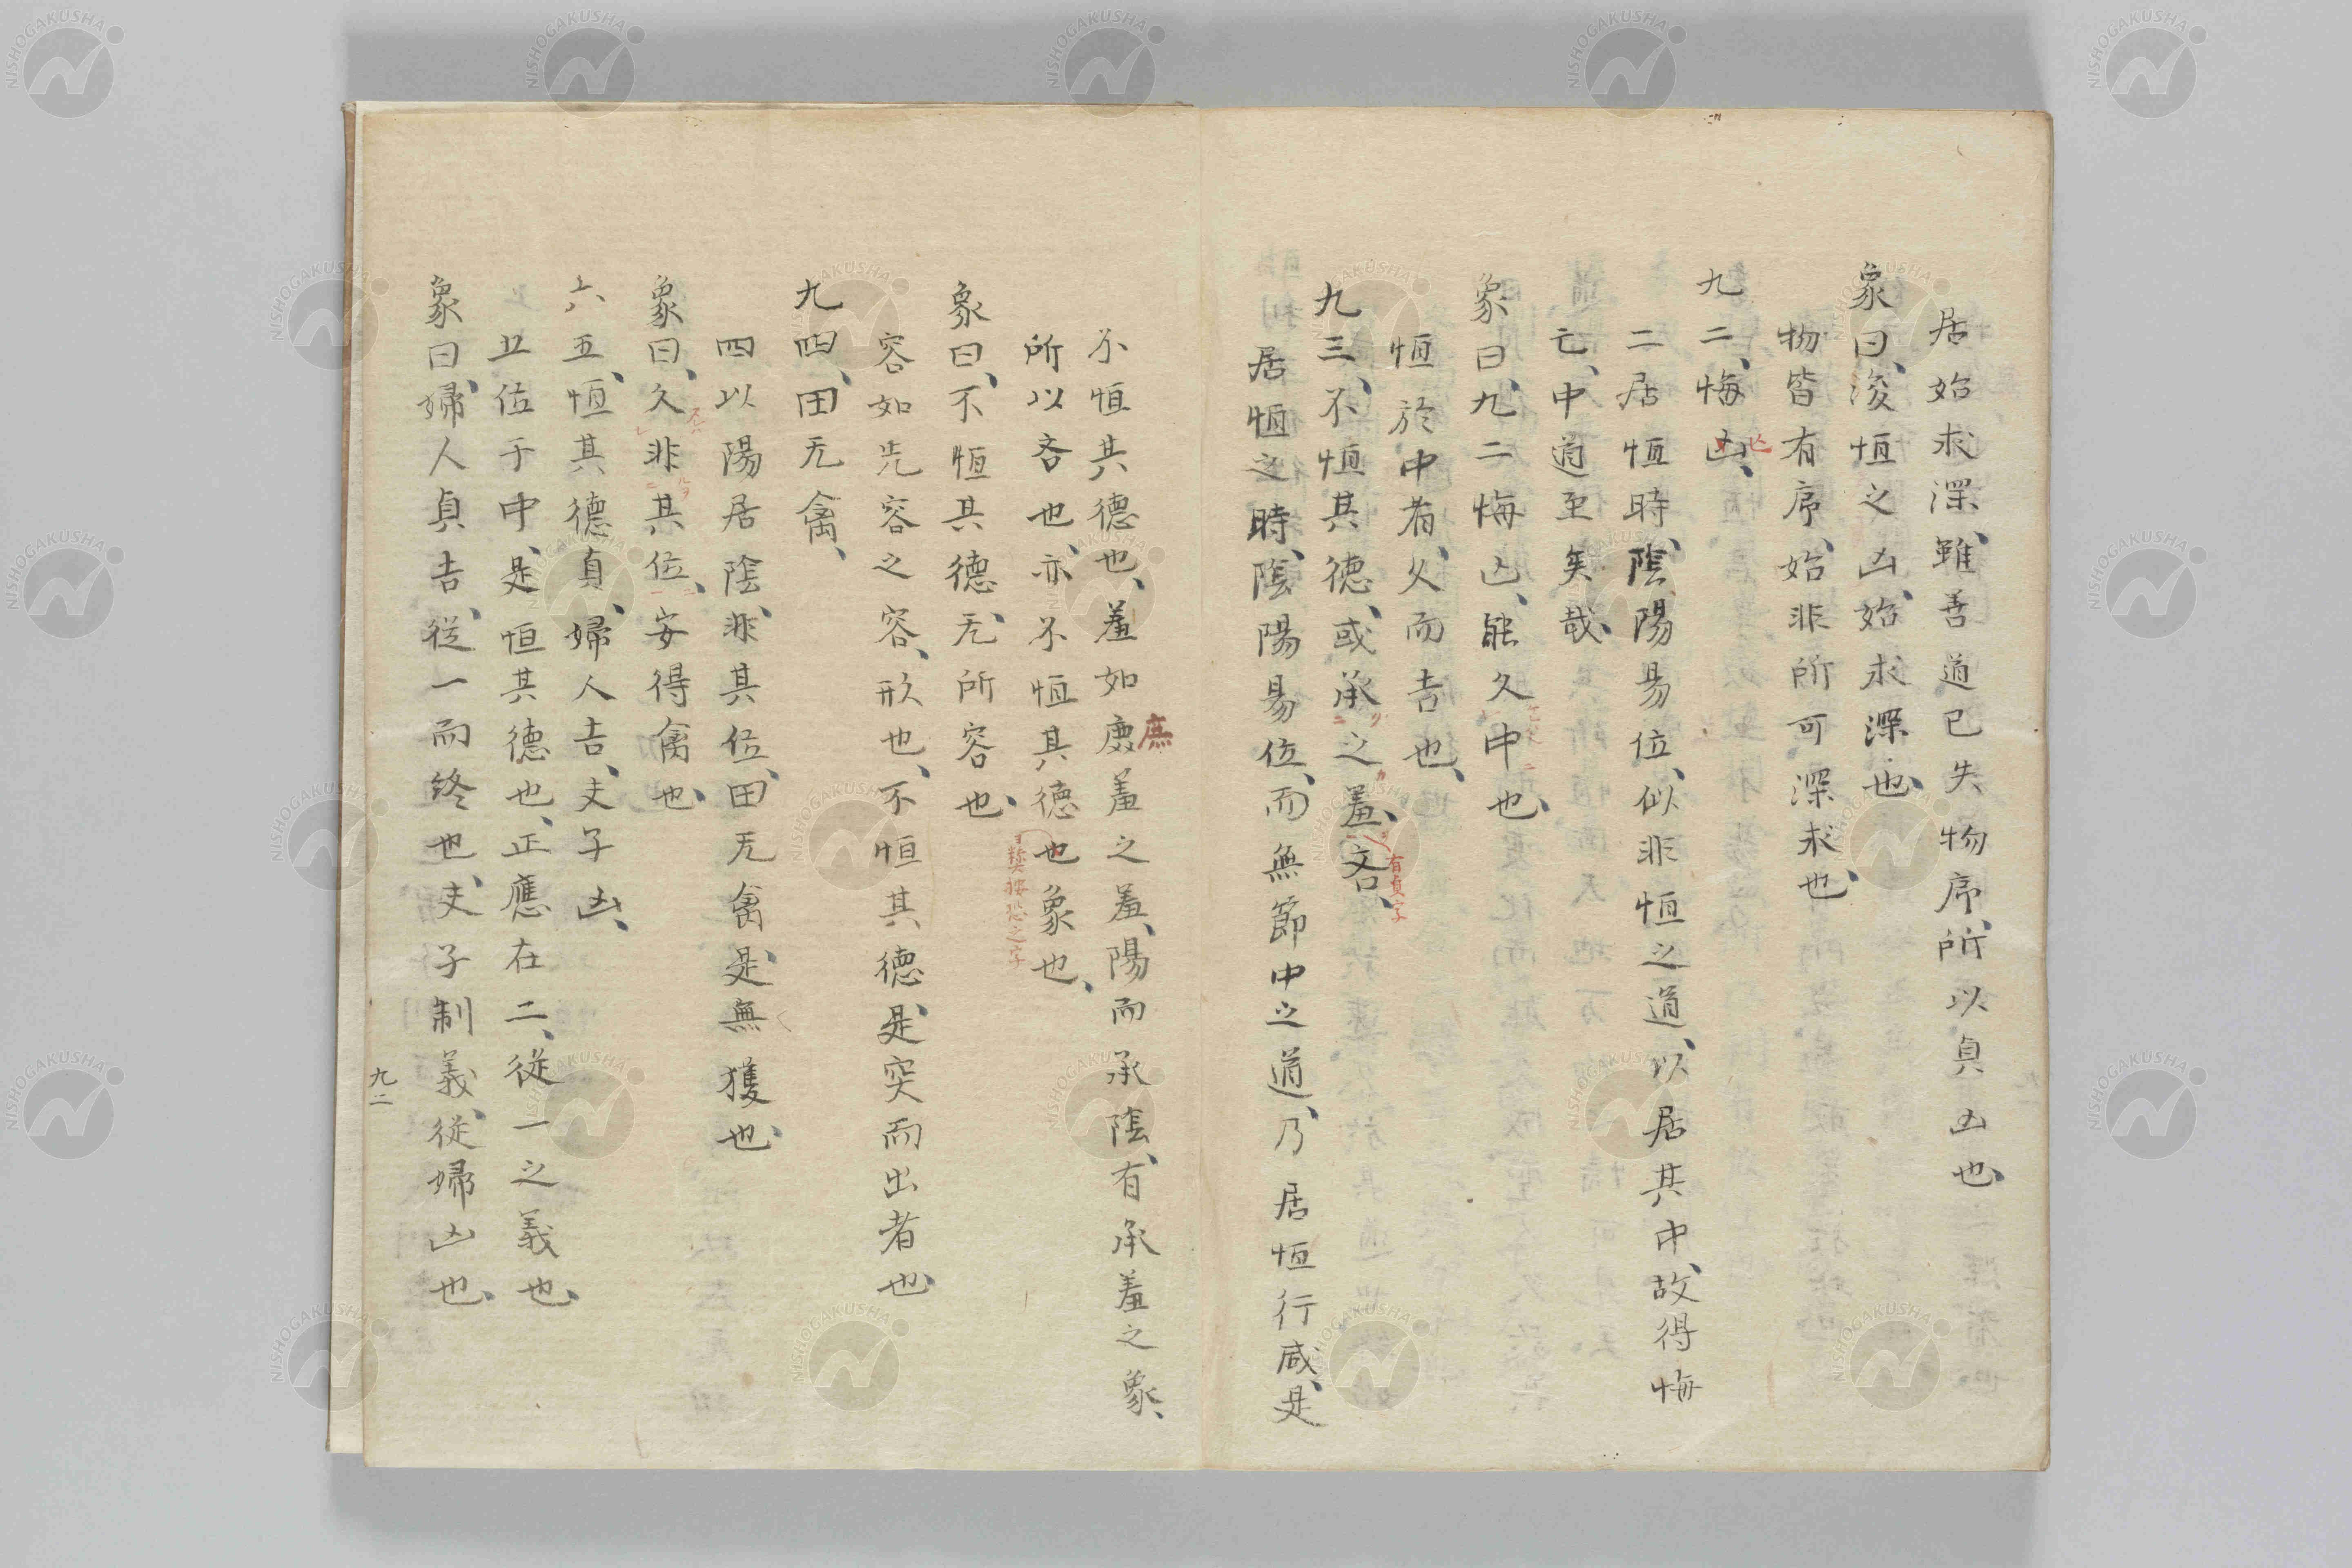 居始求深、雖善道已失物序、所以貞凶也、
象曰、浚恒之凶、始求深也、
物皆有序、始非所可深求也、
九二、悔凶、
亡
二居恒時、陰陽易位、似非恒之道、以居其中、故得悔
亡、中道至矣哉、
象曰、九二悔亡、能久中也、
恒於中者、久而吉也、
九三、不恒其德、或承之羞、吝、
有貞字
居恒之時、陰陽易位、而無節中之道、乃居恒行咸、是
不恒其德也、羞如庶羞之羞、陽而承陰、有承羞之象、
庶
所以吝也、亦不恒其德也象也、
按恐之字
象曰、不恒其德、无所容也、
容如先容之容、形也、不恒其德、是突而出者也、
九四、田无禽、
四以陽居陰、非其位、田无禽、是無獲也、
象曰、久非其位、安得禽也、
六五、恒其德貞、婦人吉、夫子凶、
五位于中、是恒其德也、正應在二、從一之義也、
象曰、婦人貞吉、從一而終也、夫子制義、從婦凶也、
九二
NISHOGAKUSHA